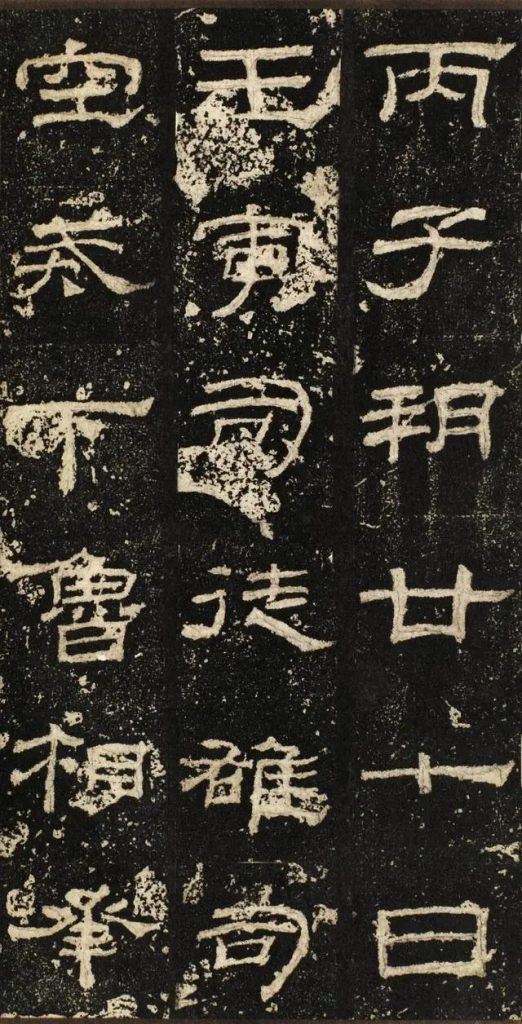 丙子朔廿七日
壬寅司徒雄司
空戒下魯相承